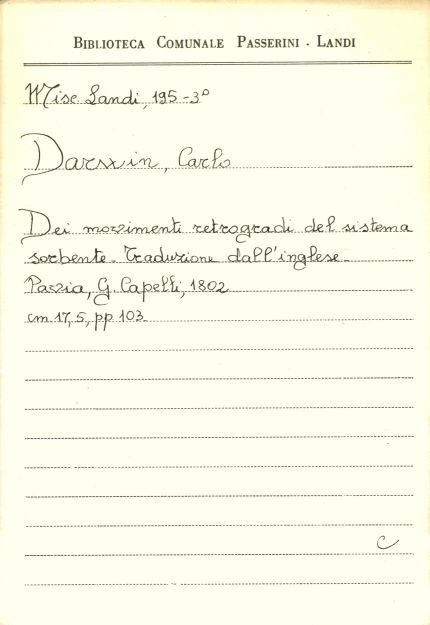 BIBLIOTECA COMUNALE PASSERINI - LANDI
Misc Landi, 195-3º
Darwin, Carlo
Dei movimenti retrogradi del sistema
sorbente. Traduzione dall'inglese.
Pavia, G. Capelli, 1802
cm 17,5, pp 103
C